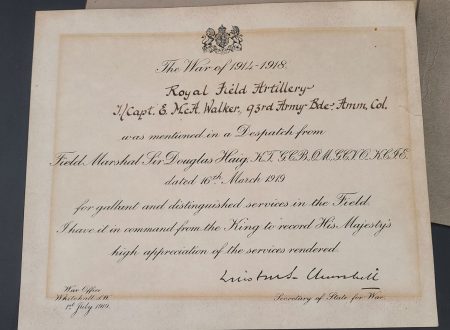 The War of 1914-1918.
Royal Field Artillery
T/Capt. E. McA. Walker, 93rd Army Bde. Amm. Col.
was mentioned in a Despatch from
Field Marshal Sir Douglas Haig, K.T. G.C.B. O.M. G.C.V.O. K.C.I.E.
dated 16th March 1919
for gallant and distinguished services in the Field.
I have it in command from the King to record His Majesty's
high appreciation of the services rendered.
Winston S. Churchill
War Office
Whitehall, S.W.
1st July 1919.
Secretary of State for War.